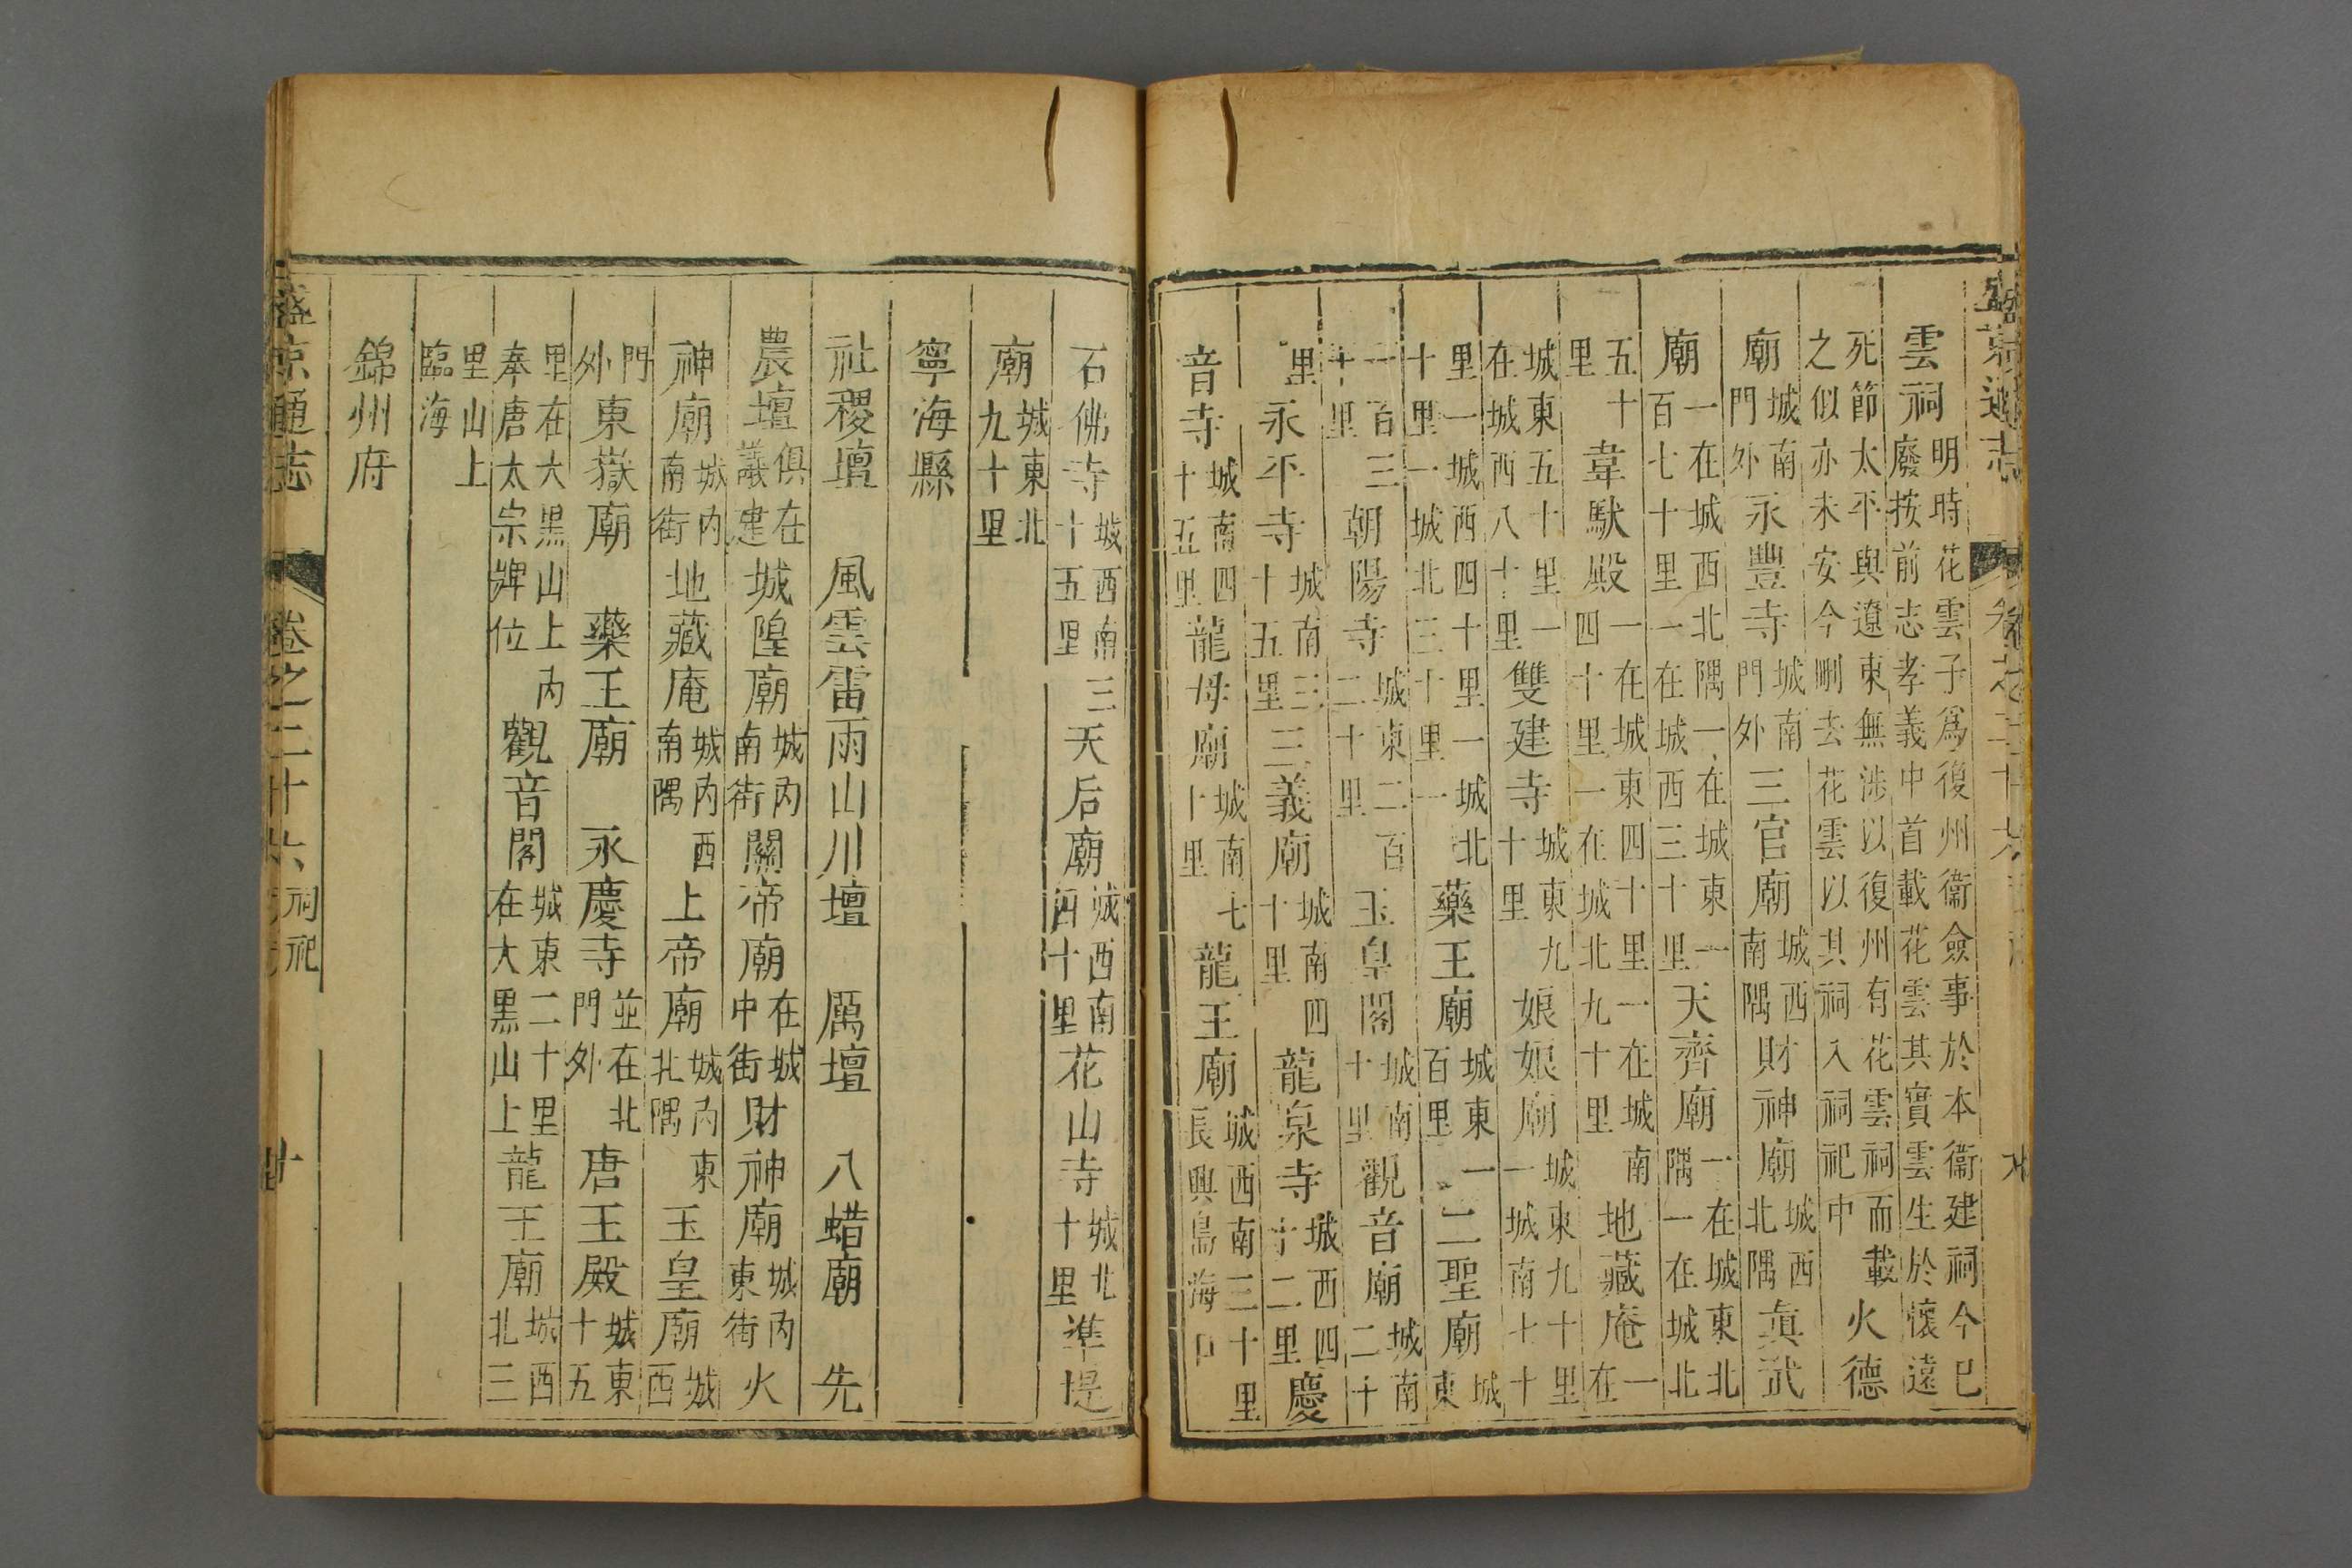 盛京通志 卷之二十六
雲祠明時花雲子爲復州衞僉事於本衞建祠今已廢按前志孝義中首載花雲其實雲生於懷遠
死節太平與遼東無涉以復州有花雲祠而載之似亦未安今刪去花雲以其祠入祠祀中火德
廟城南門外永豐寺城南門外三官廟城西南隅財神廟城西北隅眞武
廟一在城西北隅一在城東一百七十里一在城西三十里天齊廟一在城東北隅一在城北
五十里韋馱殿一在城東四十里一在城南四十里一在城北九十里地藏庵一在
城東五十里一在城西八十里雙建寺城東九十里娘娘廟城東九十里一城南七十
里一城西四十里一城北十里一城北三十里一藥王廟城東一百里二聖廟城東
一百三十里朝陽寺城東二百二十里玉皇閣城南十里觀音廟城南二十
里永平寺城南三十五里三義廟城南四十里龍泉寺城西四十二里慶
音寺城南四十五里龍母廟城南七十里龍王廟城西南三十里長興島海口
石佛寺城西南三十五里天后廟城西南四十里花山寺城北十里準提
廟城東北九十里
寧海縣
社稷壇 風雲雷雨山川壇 厲壇 八蜡廟 先
農壇俱在議建城隍廟城內南街關帝廟在城中街財神廟城內東街火
神廟城內南街地藏庵城內西南隅上帝廟城內東北隅玉皇廟城西
門外東嶽廟 藥王廟 永慶寺並在北門外唐王殿城東十五
里在大黑山上內奉唐太宗牌位觀音閣城東二十里在大黑山上龍王廟城西北三
里山上臨海
錦州府
盛京通志 卷之二十六 祠祀